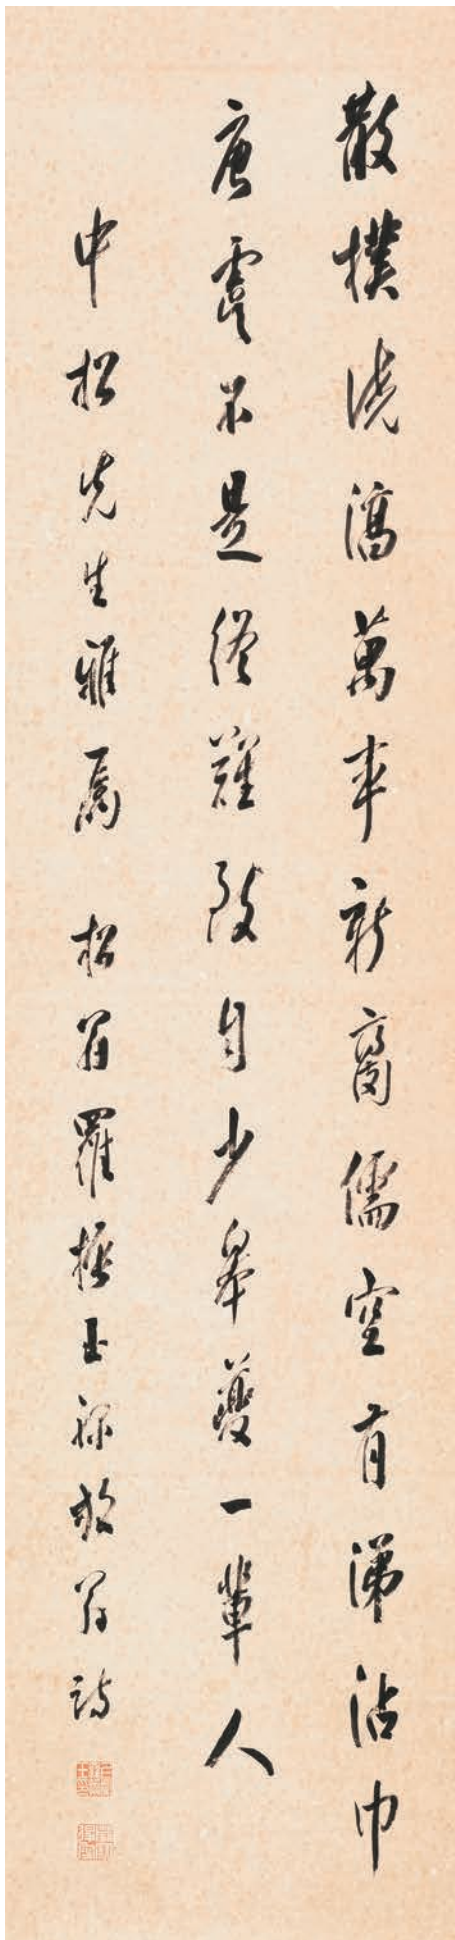 散樸澆漓萬事新裔儒空有涕沾巾
唐虞不是終難致自少皋夔一輩人
中松先生雅屬 松翁羅振玉錄放翁詩